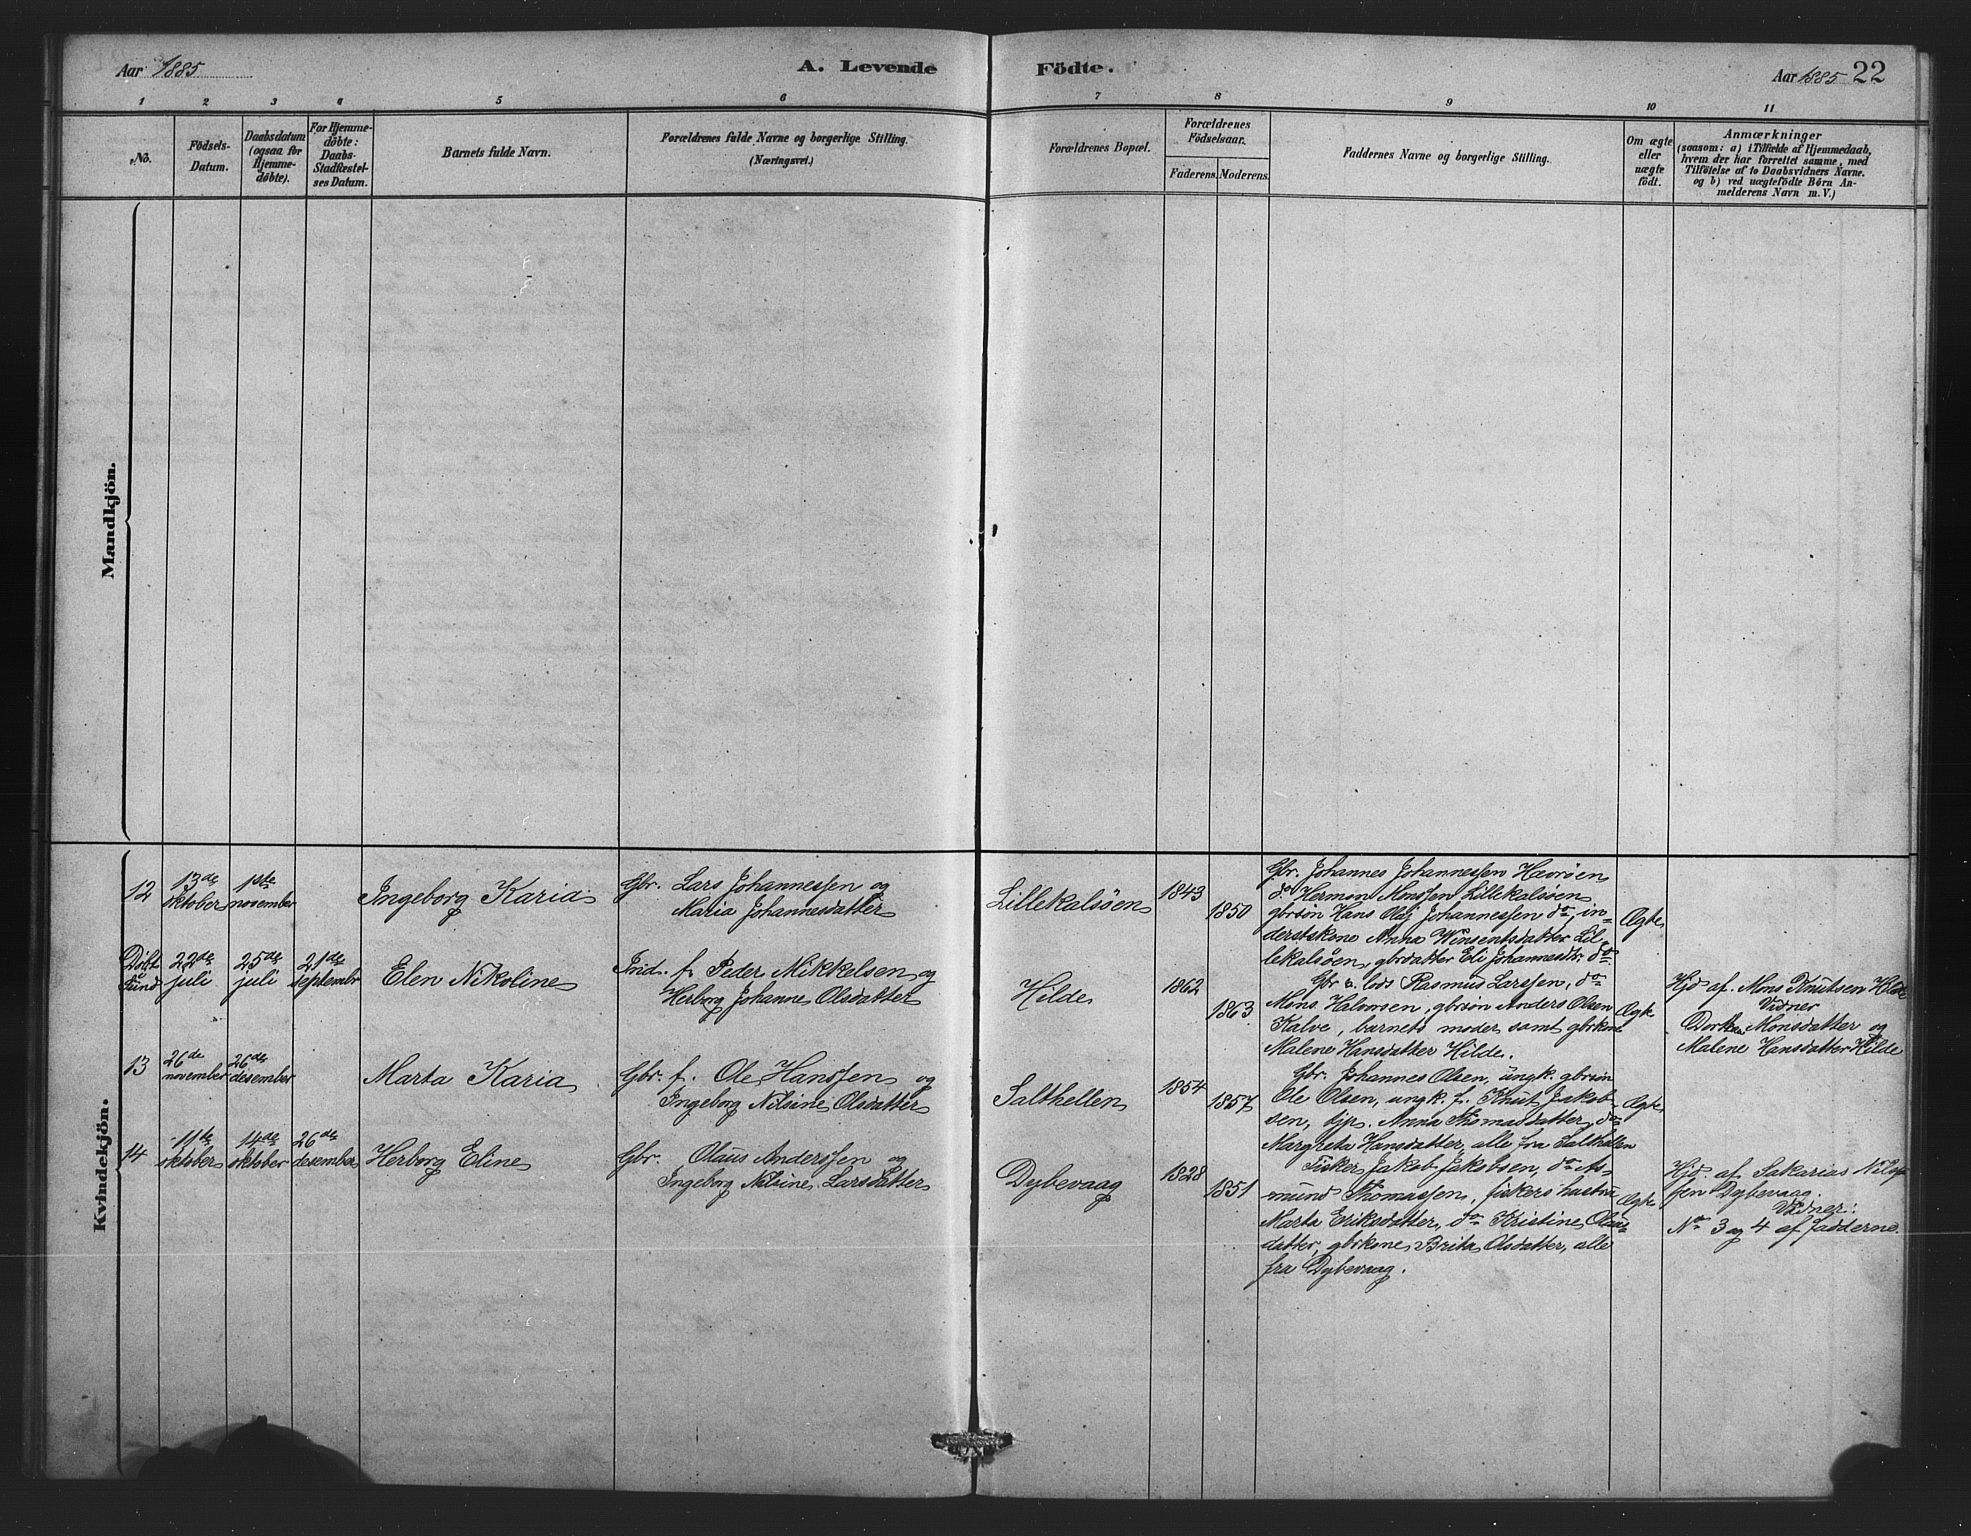 Aar 1885
A. Levende Födte.
Aar 1885 22
1 2 3 4 5 6 7 8 9 10 11
No.
Födsels-
Datum.
Daabsdatum
(ogsaa for
Hjemme-
døbte).
For Hjemme-
døbte:
Daabs-
Stadfæstel-
ses Datum.
Barnets fulde Navn.
Forældrenes fulde Navne og borgerlige Stilling.
(Næringsvei.)
Forældrenes Bopæl.
Forældrenes
Födselsaar.
Faderens. Moderens.
Faddernes Navne og borgerlige Stilling.
Om ægte
eller
uægte
födt.
Anmærkninger
(saasom: a) i Tilfælde af Hjemmedaab,
hvem der har forrettet samme, med
Tilföielse af to Daabsvidners Navne.
og b) ved uægtefödte Børn An-
melderens Navn m. V.)
Mandkjön.
Kvindekjön.
12
13de
oktober
1ste
november
Ingeborg Karia
Gbr. Lars Johannessen og
Maria Johannesdatter
Lillekalsöen
1843
1850
Gbr. Johannes Johannessen Havröen
do Herman Monssen Lillekalsöen
gbrsön Hans Olaj Johannessen do, in-
derstkone Anna Winsentsdatter Lil-
lekalsöen, gbrdatter Eli Johannesdtr do
Ægte
Døbt
Sund
22de
juli
25de
juli
21de
septembr
Elen Nikoline
Ind. f. Peder Mikkelsen og
Herborg Johanne Olsdatter
Hilde
1862
1863
Gbr & lods Rasmus Larssen, do
Mons Halvorsen, gbrsön Anders Olsen
Kalve, barnets moder samt gbrkone
Malene Hansdatter Hilde.
Ægte
Hjd af. Mons Knutsen Hilde
Vidner
Monsdatter og
Malene Hansdatter Hilde
13
26de
november
26de
desember
Marta Karia
Gbr. f. Ole Hanssen og
Ingeborg Nilsine Olsdatter
Salthellen
1854
1857
Gbr. Johannes Olsen, ungk. gbrsön
Ole Olsen, ungk. f. Knut Jakob-
sen, Anna Thomasdatter, do
Margreta Hansdatter, alle fra Salthellen
Ægte
14
11te
oktober
14de
oktober
26de
desember
Herborg Eline
Gbr. Olaus Anderssen og
Ingeborg Nilsine Larsdatter
Dybevaag
1828
1851
Fisker Jakob Jakobsen, do As-
mund Thomassen, fiskers hustru
Marta Eriksdatter, do Kristine Olaus-
datter, gbrkone Brita Olsdatter, alle
fra Dybevaag.
Ægte
Hjd. af Sakarias Nils-
sen Dybevaag.
Vidner:
No 3 og 4 af fadderne.